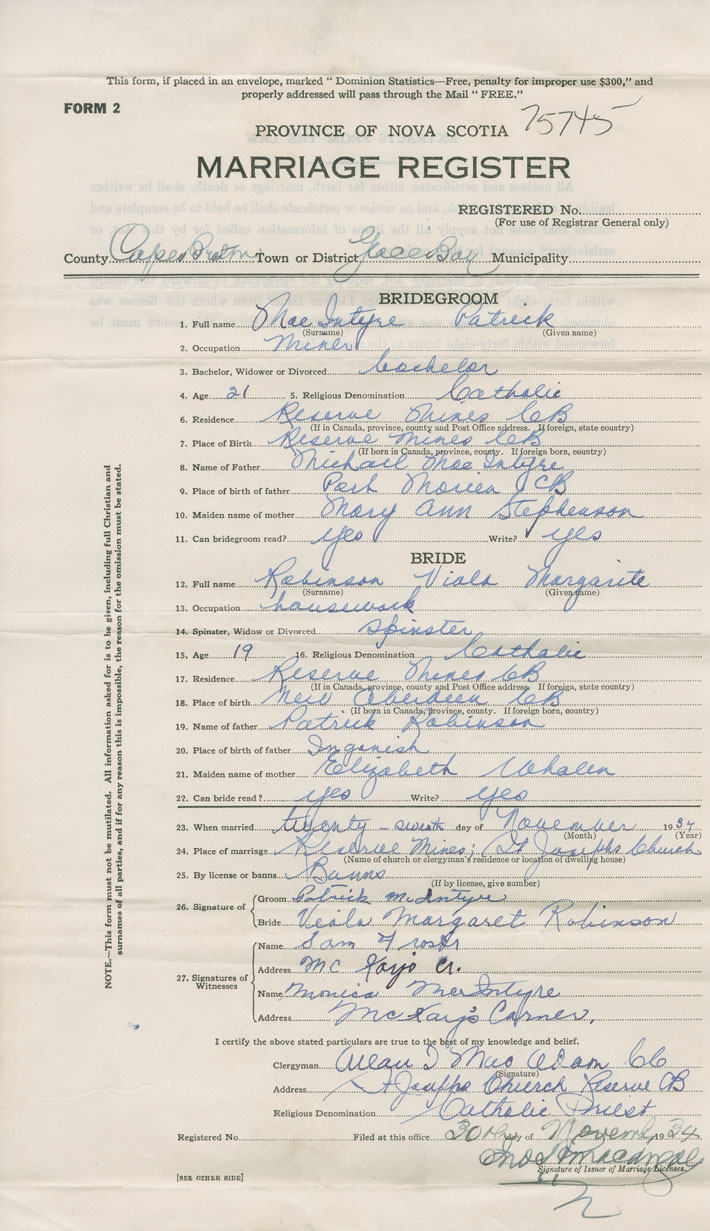 This form, if placed in an envelope, marked " Dominion Statistics—Free, penalty for improper use $300," and
properly addressed will pass through the Mail " FREE."
FORM 2
75745
PROVINCE OF NOVA SCOTIA
MARRIAGE REGISTER
REGISTERED No.
(For use of Registrar General only)
County Cape Breton Town or District Glace Bay Municipality
BRIDEGROOM
1. Full name Mac Intyre Patrick
(Surname) (Given name)
2. Occupation Miner
3. Bachelor, Widower or Divorced bachelor
4. Age 21 5. Religious Denomination Catholic
6. Residence Reserve Mines CB
(If in Canada, province, county and Post Office address. If foreign, state country)
7. Place of Birth Reserve Mines CB
(If born in Canada, province, county. If foreign born, country)
8. Name of Father Michael Mac Intyre
9. Place of birth of father Port Morien CB
10. Maiden name of mother Mary Ann Stephenson
11. Can bridegroom read? yes Write? yes
BRIDE
12. Full name Robinson Viola Margarite
(Surname) (Given name)
13. Occupation housework
14. Spinster, Widow or Divorced Spinster
15. Age 19 16. Religious Denomination Catholic
17. Residence Reserve Mines CB
(If in Canada, province, county and Post Office address. If foreign, state country)
18. Place of birth New Aberdeen CB
(If born in Canada, province, county. If foreign born, country)
19. Name of father Patrick Robinson
20. Place of birth of father Ingonish
21. Maiden name of mother Elizabeth Whalen
22. Can bride read? yes Write? yes
23. When married twenty - day of November 1934
(Month) (Year)
24. Place of marriage Reserve Mines; St Josephs Church
(Name of church or clergyman's residence or location of dwelling house)
25. By license or banns Banns
(If by license, give number)
26. Signature of Groom Patrick McIntyre
Bride Viola Margaret Robinson
27. Signatures of Witnesses Name Sam
Address Mc Kays Cr.
Name Monica MacIntyre
Address McKay's Corner,
I certify the above stated particulars are true to the best of my knowledge and belief.
Clergyman Allan J Mac Adam CC
(Signature)
Address St Josephs Church Reserve CB
Religious Denomination Catholic Priest
Registered No. Filed at this office 30th day of Novemb 1934
Signature of Issuer of Marriage Licenses.
[SEE OTHER SIDE]
NOTE.—This form must not be mutilated. All information asked for is to be given, including full Christian and
surnames of all parties, and if for any reason this is impossible, the reason for the omission must be stated.